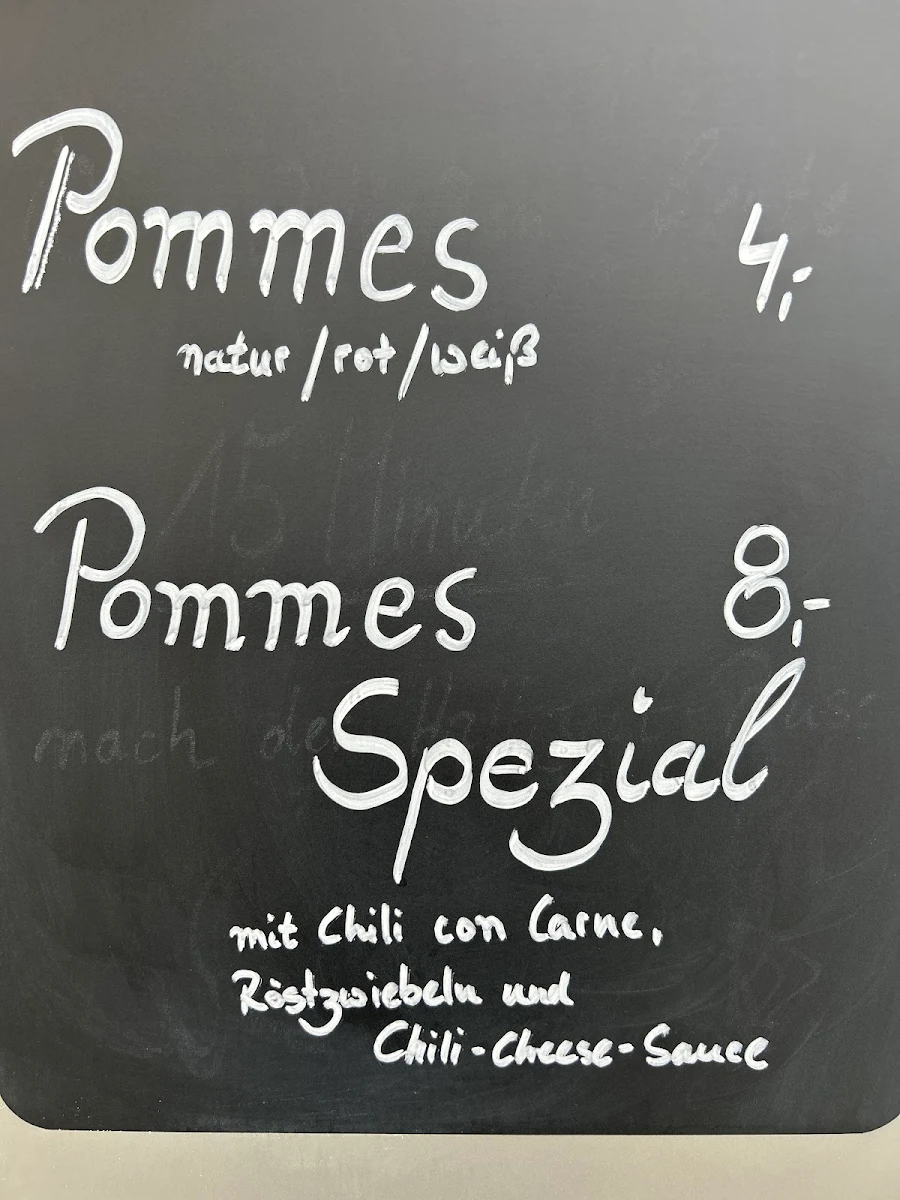 Pommes 4,-
natur/rot/weiß
Pommes 8,-
Spezial
mit Chili con Carne,
Röstzwiebeln und
Chili-Cheese-Sauce